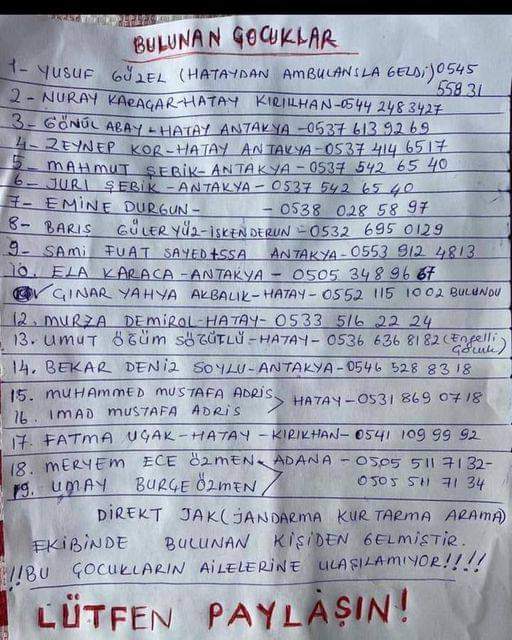 BULUNAN ÇOCUKLAR
1- YUSUF GÜZEL (HATAYDAN AMBULANSLA GELDİ) 0545
558 31
2- NURAY KARAÇAR-HATAY KIRIKHAN-0544 248 3427
3- GÖNÜL ABAY - HATAY ANTAKYA -0537 613 92 69
4- ZEYNEP KOR-HATAY ANTAKYA-0537 414 65 17
5- MAHMUT ŞEBİK-ANTAKYA - 0537 542 65 40
6- JURİ ŞEBİK - ANTAKYA - 0537 542 65 40
7- EMİNE DURGUN- - 0538 028 58 97
8- BARIS GÜLERYÜZ-İSKENDERUN - 0532 695 0129
9- SAMİ FUAT SAYED ISSA ANTAKYA-0553 912 4813
10. ELA KARACA -ANTAKYA - 0505 348 96 67
✓ ÇINAR YAHYA AKBALIK-HATAY-0552 115 1002 BULUNDU
12. MURZA DEMİROL-HATAY- 0533 516 22 24
13. UMUT ÖĞÜM SÖĞÜTLÜ -HATAY- 0536 636 8182 (Engelli
Çocuk)
14. BEKAR DENİZ SOYLU-ANTAKYA-0546 528 83 18
15. MUHAMMED MUSTAFA ADRİS
HATAY-0531 869 07 18
16. IMAD MUSTAFA ADRİS
17. FATMA UÇAK-HATAY - KIRIKHAN- 0541 109 99 92
18. MERYEM ECE ÖZMEN - ADANA - 0505 511 71 32-
19. UMAY BURÇE ÖZMEN 0505 511 71 34
DİREKT JAK (JANDARMA KURTARMA ARAMA)
EKİBİNDE BULUNAN KİŞİDEN GELMİŞTİR.
!!BU ÇOCUKLARIN AİLELERİNE ULAŞILAMIYOR!!!!
LÜTFEN PAYLAŞIN!